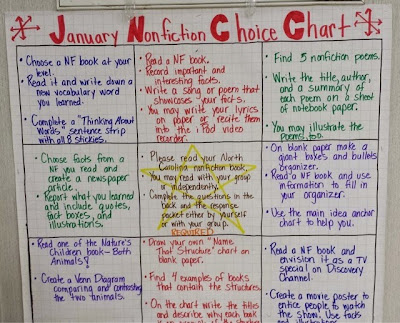 January Nonfiction Choice Chart
• Choose a NF book at your
level.
• Read it and write down a
new vocabulary word
you learned.
• Complete a "Thinking About
Words" sentence strip
with all 8 stickies.
• Read a NF book.
• Record important and
interesting facts.
• Write a song or poem that
showcases your facts.
• You may write your lyrics
on paper or recite them
into the iPod video
recorder.
• Find 5 nonfiction poems.
• Write the title, author,
and a summary of
each poem on a sheet
of notebook paper.
• You may illustrate the
poems, too.
• Choose facts from a
NF you read and
create a newspaper
article.
• Report what you learned
and include quotes,
fact boxes, and
illustrations.
• Please read your North
Carolina nonfiction book.
• You may read with your group
or independently.
• Complete the questions in the
back and the response
packet either by yourself
or with your group.
REQUIRED
• On blank paper make a
giant boxes and bullets
organizer.
• Read a NF book and use
information to fill in
your organizer.
• Use the main idea anchor
chart to help you.
• Read one of the Nature's
Children books - Both
Animals!
• Create a Venn Diagram
comparing and contrasting
the two animals.
• Draw your own "Name
That Structure" chart on
blank paper.
• Find 4 examples of books
that contain the structures.
• On the chart write the titles
and describe why each book
• Read a NF book and
envision it as a TV
special on Discovery
Channel.
• Create a movie poster to
entice people to watch
the show. Use facts